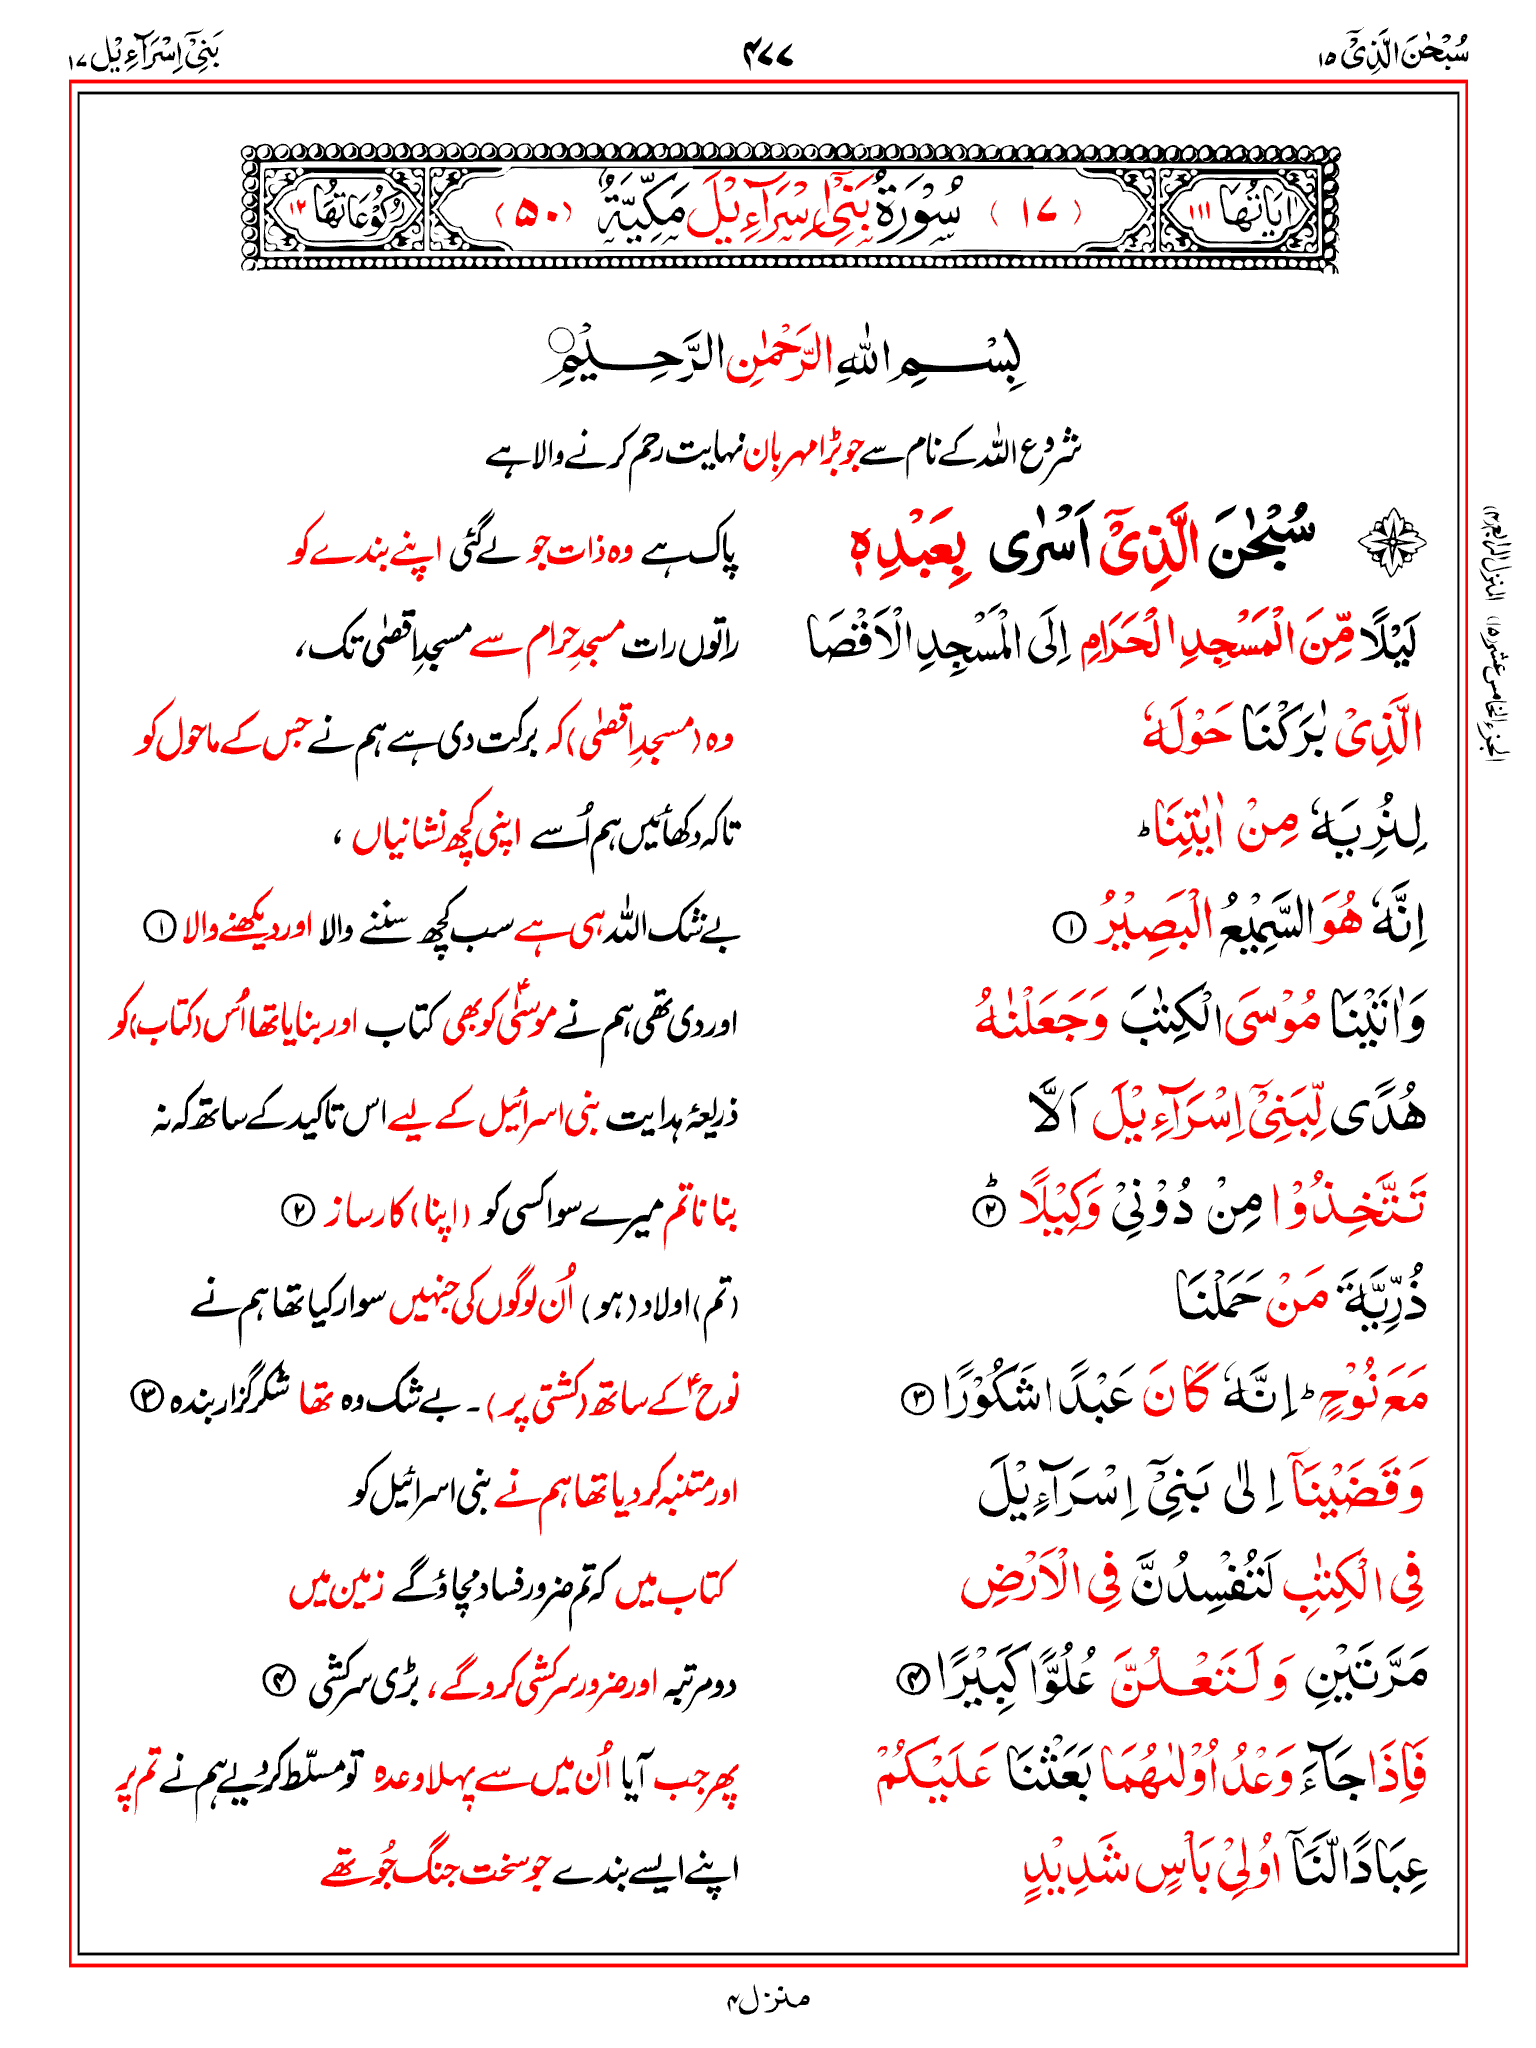 سُبْحٰنَ الَّذِیْۤ ۱۵
۴۷۷
بَنِیْۤ اِسْرَآءِیْل ۱۷
اٰیَاتُهَا ۱۱۱
(۱۷) سُوْرَةُ بَنِیْۤ اِسْرَآءِیْلَ مَكِّیَّةٌ (۵۰)
رُكُوْعَاتُهَا ۱۲
بِسْمِ اللّٰهِ الرَّحْمٰنِ الرَّحِیْمِ
شروع اللہ کے نام سے جو بڑا مہربان نہایت رحم کرنے والا ہے
سُبْحٰنَ الَّذِیْۤ اَسْرٰی بِعَبْدِهٖ پاک ہے وہ ذات جو لے گئی اپنے بندے کو
لَیْلًا مِّنَ الْمَسْجِدِ الْحَرَامِ اِلَی الْمَسْجِدِ الْاَقْصَا راتوں رات مسجدِ حرام سے مسجدِ اقصٰی تک،
الَّذِیْ بٰرَكْنَا حَوْلَهٗ وہ (مسجدِ اقصٰی) کہ برکت دی ہے ہم نے جس کے ماحول کو
لِنُرِیَهٗ مِنْ اٰیٰتِنَا ؕ تاکہ دکھائیں ہم اُسے اپنی کچھ نشانیاں ،
اِنَّهٗ هُوَ السَّمِیْعُ الْبَصِیْرُ ۱ بے شک اللہ ہی ہے سب کچھ سننے والا اور دیکھنے والا ۱
وَاٰتَیْنَا مُوْسَی الْكِتٰبَ وَجَعَلْنٰهُ اور دی تھی ہم نے موسٰیؑ کو بھی کتاب اور بنایا تھا اُس (کتاب) کو
هُدًی لِّبَنِیْۤ اِسْرَآءِیْلَ اَلَّا ذریعۂ ہدایت بنی اسرائیل کے لیے اس تاکید کے ساتھ کہ نہ
تَتَّخِذُوْا مِنْ دُوْنِیْ وَكِیْلًا ؕ ۲ بنانا تم میرے سوا کسی کو (اپنا) کارساز ۲
ذُرِّیَّةَ مَنْ حَمَلْنَا (تم) اولاد (ہو) اُن لوگوں کی جنہیں سوار کیا تھا ہم نے
مَعَ نُوْحٍ ؕ اِنَّهٗ كَانَ عَبْدًا شَكُوْرًا ۳ نوحؑ کے ساتھ (کشتی پر)۔ بے شک وہ تھا شکر گزار بندہ ۳
وَقَضَیْنَاۤ اِلٰی بَنِیْۤ اِسْرَآءِیْلَ اور متنبہ کر دیا تھا ہم نے بنی اسرائیل کو
فِی الْكِتٰبِ لَتُفْسِدُنَّ فِی الْاَرْضِ کتاب میں کہ تم ضرور فساد مچاؤ گے زمین میں
مَرَّتَیْنِ وَلَتَعْلُنَّ عُلُوًّا كَبِیْرًا ۴ دو مرتبہ اور ضرور سرکشی کرو گے ، بڑی سرکشی ۴
فَاِذَا جَآءَ وَعْدُ اُوْلٰىهُمَا بَعَثْنَا عَلَیْكُمْ پھر جب آیا اُن میں سے پہلا وعدہ تو مسلّط کر دیے ہم نے تم پر
عِبَادًا لَّنَاۤ اُولِیْ بَاْسٍ شَدِیْدٍ اپنے ایسے بندے جو سخت جنگ جُو تھے
المنزل الرابع (۴)
الجزء الخامس عشر (۱۵)
منزل ۴